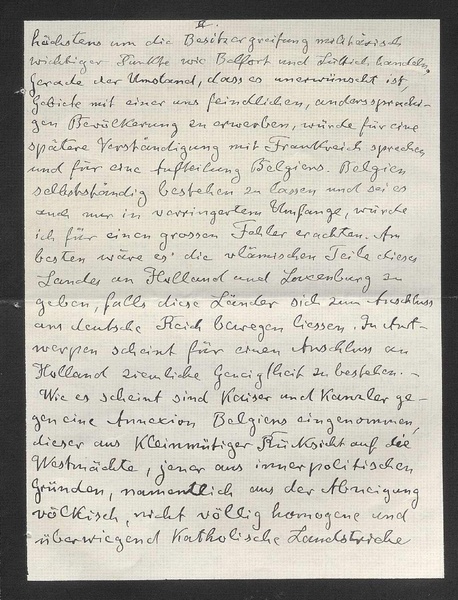 II.
höchstens um die Besitzergreifung militärisch
wichtiger Punkte wie Belfort und Lüttich handeln.
Gerade der Umstand, dass es unerwünscht ist,
Gebiete mit einer uns feindlichen, anderssprachi-
gen Bevölkerung zu erwerben, würde für eine
spätere Verständigung mit Frankreich sprechen
und für eine Aufteilung Belgiens. Belgien
selbstständig bestehen zu lassen und sei es
auch nur in verringertem Umfange, würde
ich für einen grossen Fehler erachten. Am
besten wäre es die vlämischen Teile dieses
Landes an Holland und Luxenburg zu
geben, falls diese Länder sich zum Anschluss
ans deutsche Reich bewegen liessen. In Ant-
werpen scheint für einen Anschluss an
Holland ziemliche Geneigtheit zu bestehen. –
Wie es scheint sind Kaiser und Kanzler ge-
gen eine Annexion Belgiens eingenommen,
dieser aus kleinmütiger Rücksicht auf die
Westmächte, jener aus innerpolitischen
Gründen, namentlich aus der Abneigung
völkisch, nicht völlig homogene und
überwiegend katholische Landstriche